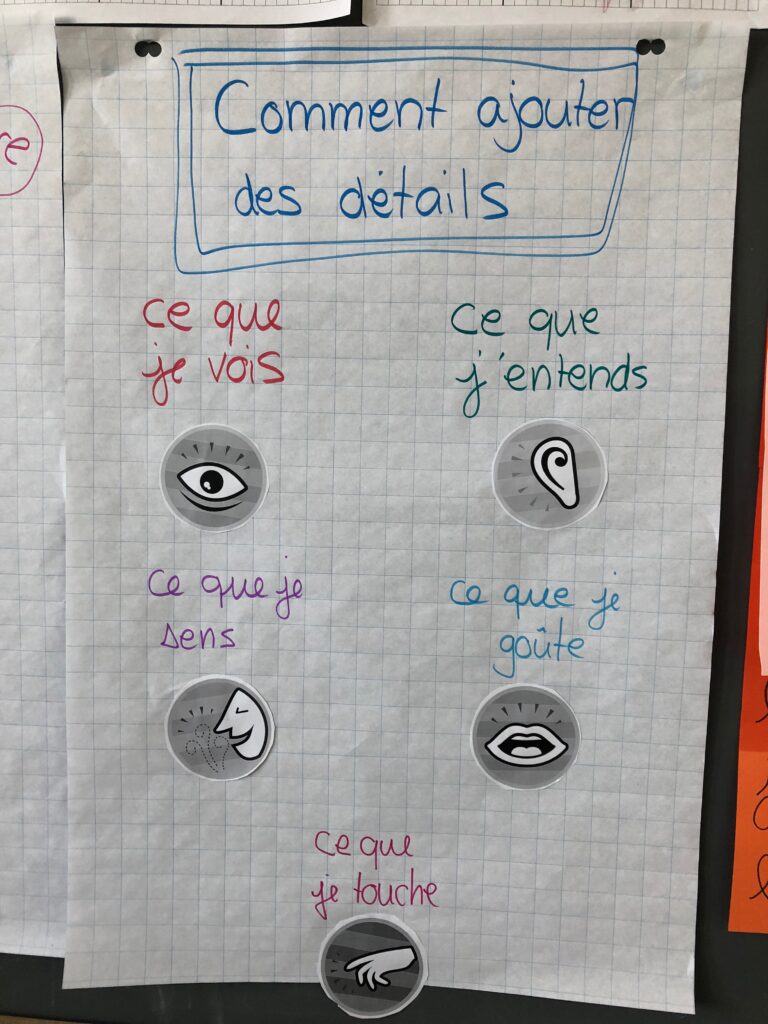 Comment ajouter
des détails
ce que
je vois
ce que
j'entends
ce que je
sens
ce que je
goûte
ce que
je touche